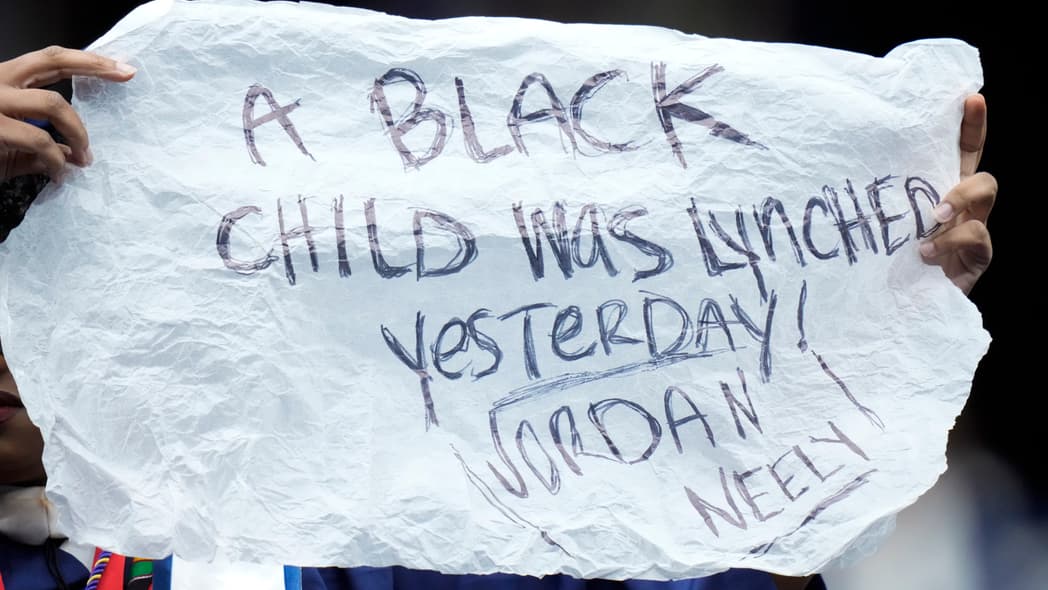 A BLACK
CHILD WAS LYNCHED
YESTERDAY!
JORDAN
NEELY